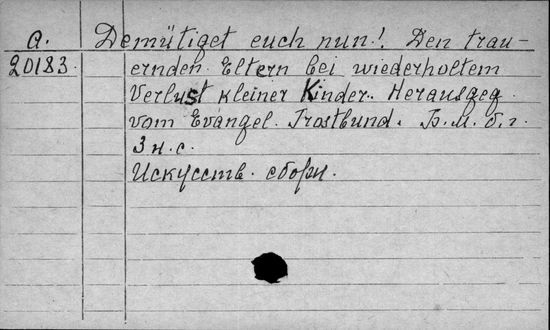 a. Demütiget euch nun! Den trau-
20183. ernden Eltern bei wiederholtem
Verlust kleiner Kinder. Herausgeg.
vom Evangel. Trostbund. Б.м.б.г.
3 н.с.
Искусств. сборн.